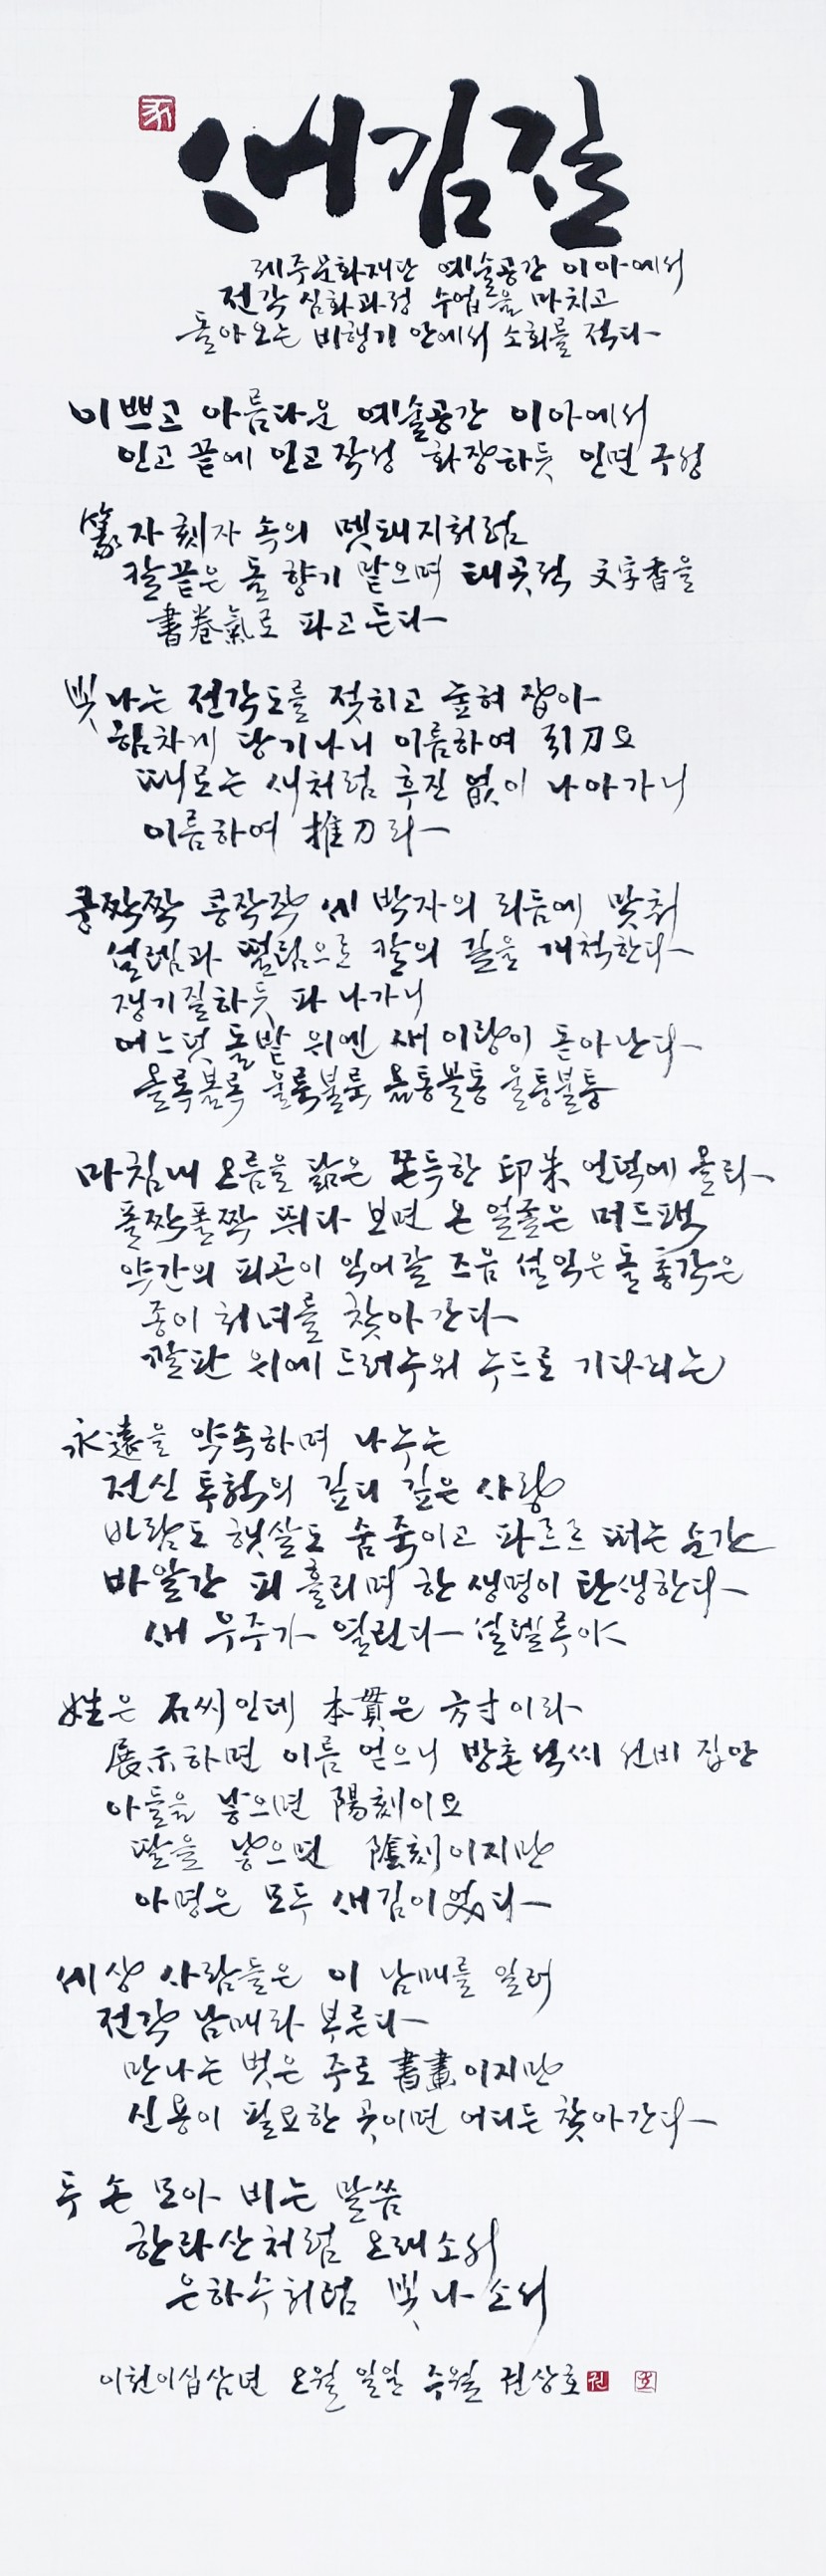 새김길
제주문화재단 예술공간 이아에서
전각 심화과정 수업을 마치고
돌아오는 비행기 안에서 소회를 적다
이쁘고 아름다운 예술공간 이아에서
인고 끝에 인고 작성 화장하듯 인면 구성
篆자 刻자 속의 멧돼지처럼
칼끝은 돌 향기 맡으며 태곳적 文字香을
書卷氣로 파고든다
빛나는 전각도를 젖히고 눕혀 잡아
힘차게 당기나니 이름하여 引刀요
때로는 새처럼 후진 없이 나아가니
이름하여 推刀라
쿵짝짝 쿵작작 세 박자의 리듬에 맞춰
설렘과 떨림으로 칼의 길을 개척한다
쟁기질하듯 파 나가니
어느덧 돌밭 위엔 새 이랑이 돋아난다
올록볼록 울룩불룩 올통볼통 울퉁불퉁
마침내 오름을 닮은 쫀득한 印朱 언덕에 올라
폴짝폴짝 뛰다 보면 온 얼굴은 머드팩
약간의 피곤이 익어갈 즈음 설익은 돌 총각은
종이 처녀를 찾아간다
깔판 위에 드러누워 누드로 기다리는
永遠을 약속하며 나누는
전신 투혼의 깊디 깊은 사랑
바람도 햇살도 숨죽이고 파르르 떠는 순간
바알간 피 흘리며 한 생명이 탄생한다
새 우주가 열린다 설렐루야
姓은 石씨인데 本貫은 方寸이라
展示하면 이름 얻으니 방촌석씨 선비 집안
아들을 낳으면 陽刻이요
딸을 낳으면 陰刻이지만
아명은 모두 새김이었다
세상 사람들은 이 남매를 일러
전각 남매라 부른다
만나는 벗은 주로 書畫이지만
신용이 필요한 곳이면 어디든 찾아간다
두 손 모아 비는 말씀
한라산처럼 오래소서
은하수처럼 빛나소서
이천이십삼년 오월 일일 수월 권상호